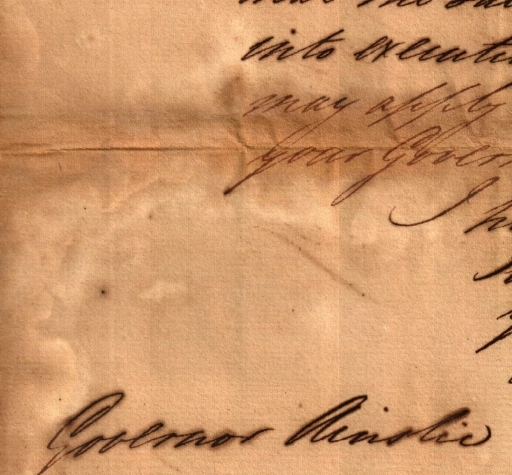 into executi
may apply
your Govern
I h
Governor Ainslie